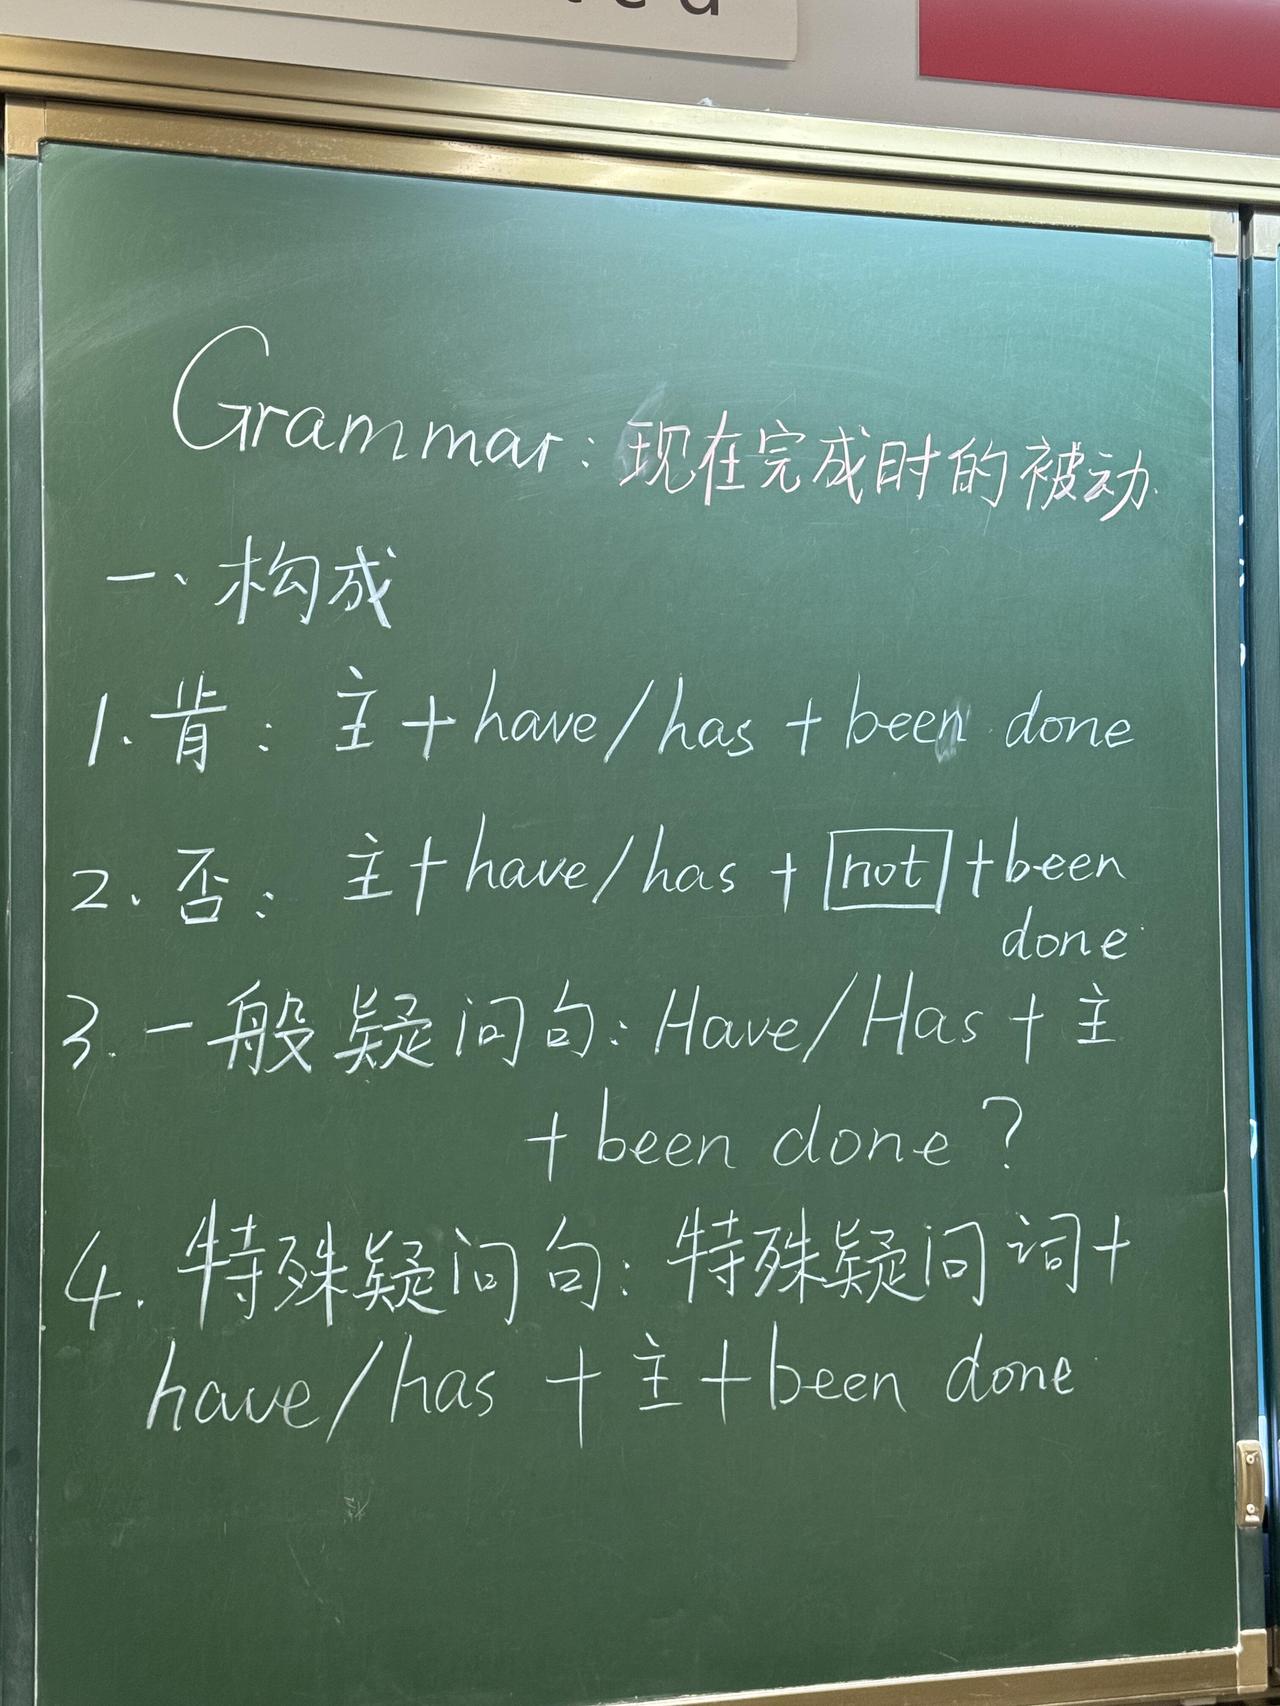 Grammar: 现在完成时的被动
一、构成
1. 肯: 主+have/has+been done
2. 否: 主+have/has+not+been
done
3. 一般疑问句: Have/Has+主
+been done?
4. 特殊疑问句: 特殊疑问词+
have/has+主+been done